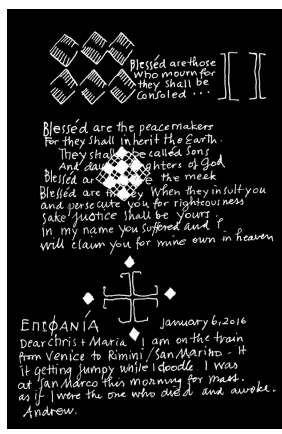 Blesséd are those
who mourn for
they shall be
consoled ...
Blesséd are the peacemakers
For they shall inherit the Earth.
They shall be called sons
And daughters of God
Blesséd are the meek
Blesséd are they When they insult you
and persecute you for righteousness'
sake Justice shall be yours.
in my name you suffered and I
will claim you for mine own in heaven
ΕΠΕΦΑΝΙΑ January 6, 2016
Dear Chris + Maria I am on the train
from Venice to Rimini / San Marino. It
it getting jumpy while I doodle. I was
at San Marco this morning for mass.
as if I were the one who died and awoke.
Andrew.